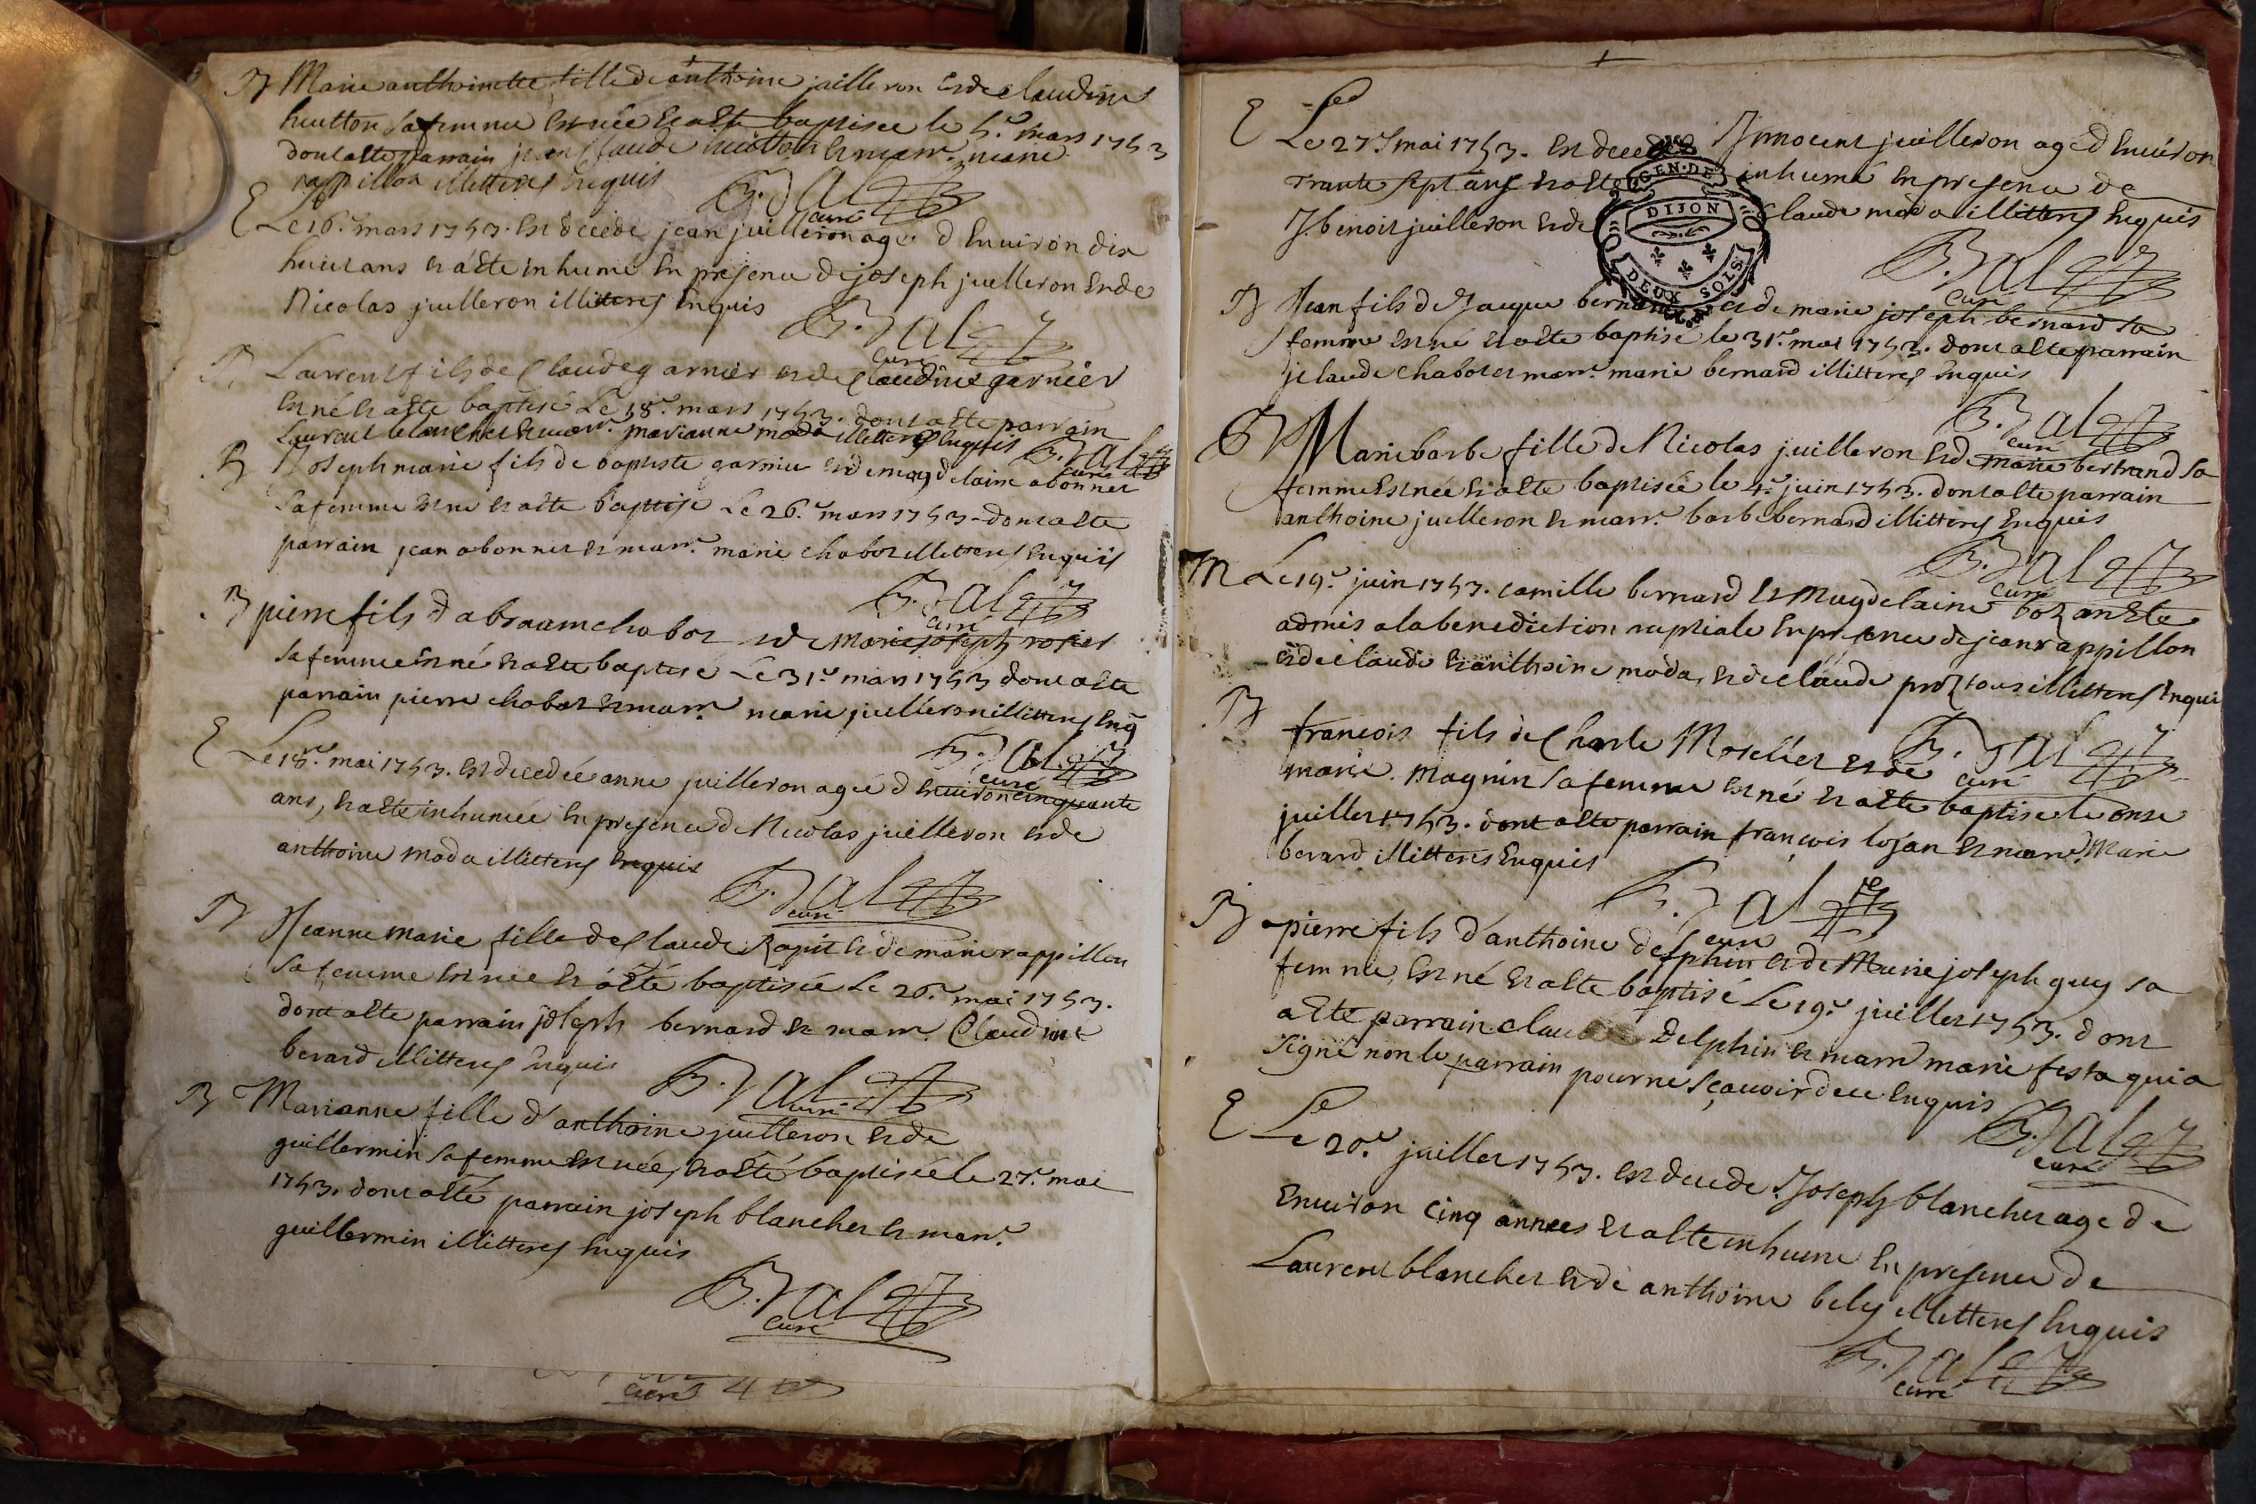 B Marie anthoinette fille de anthoine juilleron et de claudine
hutton sa femme est née et a été baptisée le 5e. mars 1753
dont a été parrain jean claude hutton et marr. marie
rappillon illitteres enquis
B. Jal curé
E Le 16e. mars 1753. est décédé jean juilleron agé d'environ dix
huit ans et a été inhumé en presence de joseph juilleron et de
Nicolas juilleron illitteres enquis
B. Jal curé
B Laurent fils de Claude garnier et de Claudine garnier
est né et a été baptisé Le 18e. mars 1753. dont a été parrain
Laurent blanchet et marr. marianne moda illitteres enquis
B. Jal curé
B Joseph marie fils de baptiste garnier et de magdelaine abonnet
sa femme est né et a été baptisé Le 26e. mars 1753. dont a été
parrain jean abonnet et marr. marie chabot illitteres enquis
B. Jal curé
B pierre fils d'abraam chabot et de Marie joseph rosier
sa femme est né et a été baptisé Le 31e. mars 1753 dont a été
parrain pierre chabot et marr. marie juilleron illitteres enq
B. Jal curé
E Le 18e. mai 1753. est décédée anne juilleron agée d'environ cinquante
ans, et a été inhumée en presence de Nicolas juilleron et de
anthoine moda illitteres enquis
B. Jal curé
B Jeanne marie fille de Claude Raput et de marie rappillon
sa femme est née et a été baptisée Le 26e. mai 1753.
dont a été parrain joseph bernard et marr. Claudine
berard illitteres enquis
B. Jal curé
B Marianne fille d'anthoine juilleron et de
guillermin sa femme est née, et a été baptisée le 27e. mai
1753. dont a été parrain joseph blanchet et marr.
guillermin illitteres enquis
B. Jal curé
curé
E Le 27e. mai 1753. est décédé Innocent juilleron agé d'environ
trante sept ans et a été inhumé en presence de
J. benoit juilleron et de Claude moda illitteres enquis
GEN. DE
DIJON
DEUX SOLS
B. Jal curé
B Jean fils de Jaque bernard et de marie joseph bernard sa
femme est né et a été baptisé le 31e. mai 1753. dont a été parrain
jclaude chabot et marr. marie bernard illitteres enquis
B. Jal curé
B Marie barbe fille de Nicolas juilleron et de marie bertrand sa
femme est née et a été baptisée le 4e. juin 1753. dont a été parrain
anthoine juilleron et marr. barbe bernard illitteres enquis
B. Jal curé
M Le 19e. juin 1753. camille bernard et Magdelaine boz an été
admis a la benediction nuptiale en presence de jean rappillon
et de claude et anthoine moda, et de claude proz tous illitteres enquis
B. Jal curé
B francois fils de Charle Moselier et de
marie magnin sa femme est né et a été baptisé le onze
juillet 1753. dont a été parrain françois lojan et marr. Marie
berard illitteres enquis
B. Jal curé
B pierre fils d'anthoine delphin et de Marie joseph guy sa
femme, est né et a été baptisé Le 19e. juillet 1753. dont
a été parrain claude Delphin et marr. marie festa qui a
signé non le parrain pour ne sçavoir de ce enquis
B. Jal curé
E Le 20e. juillet 1753. est décédé Joseph blanchet agé de
environ cinq années et a été inhumé en presence de
Laurent blanchet et de anthoine bely illitteres enquis
B. Jal curé